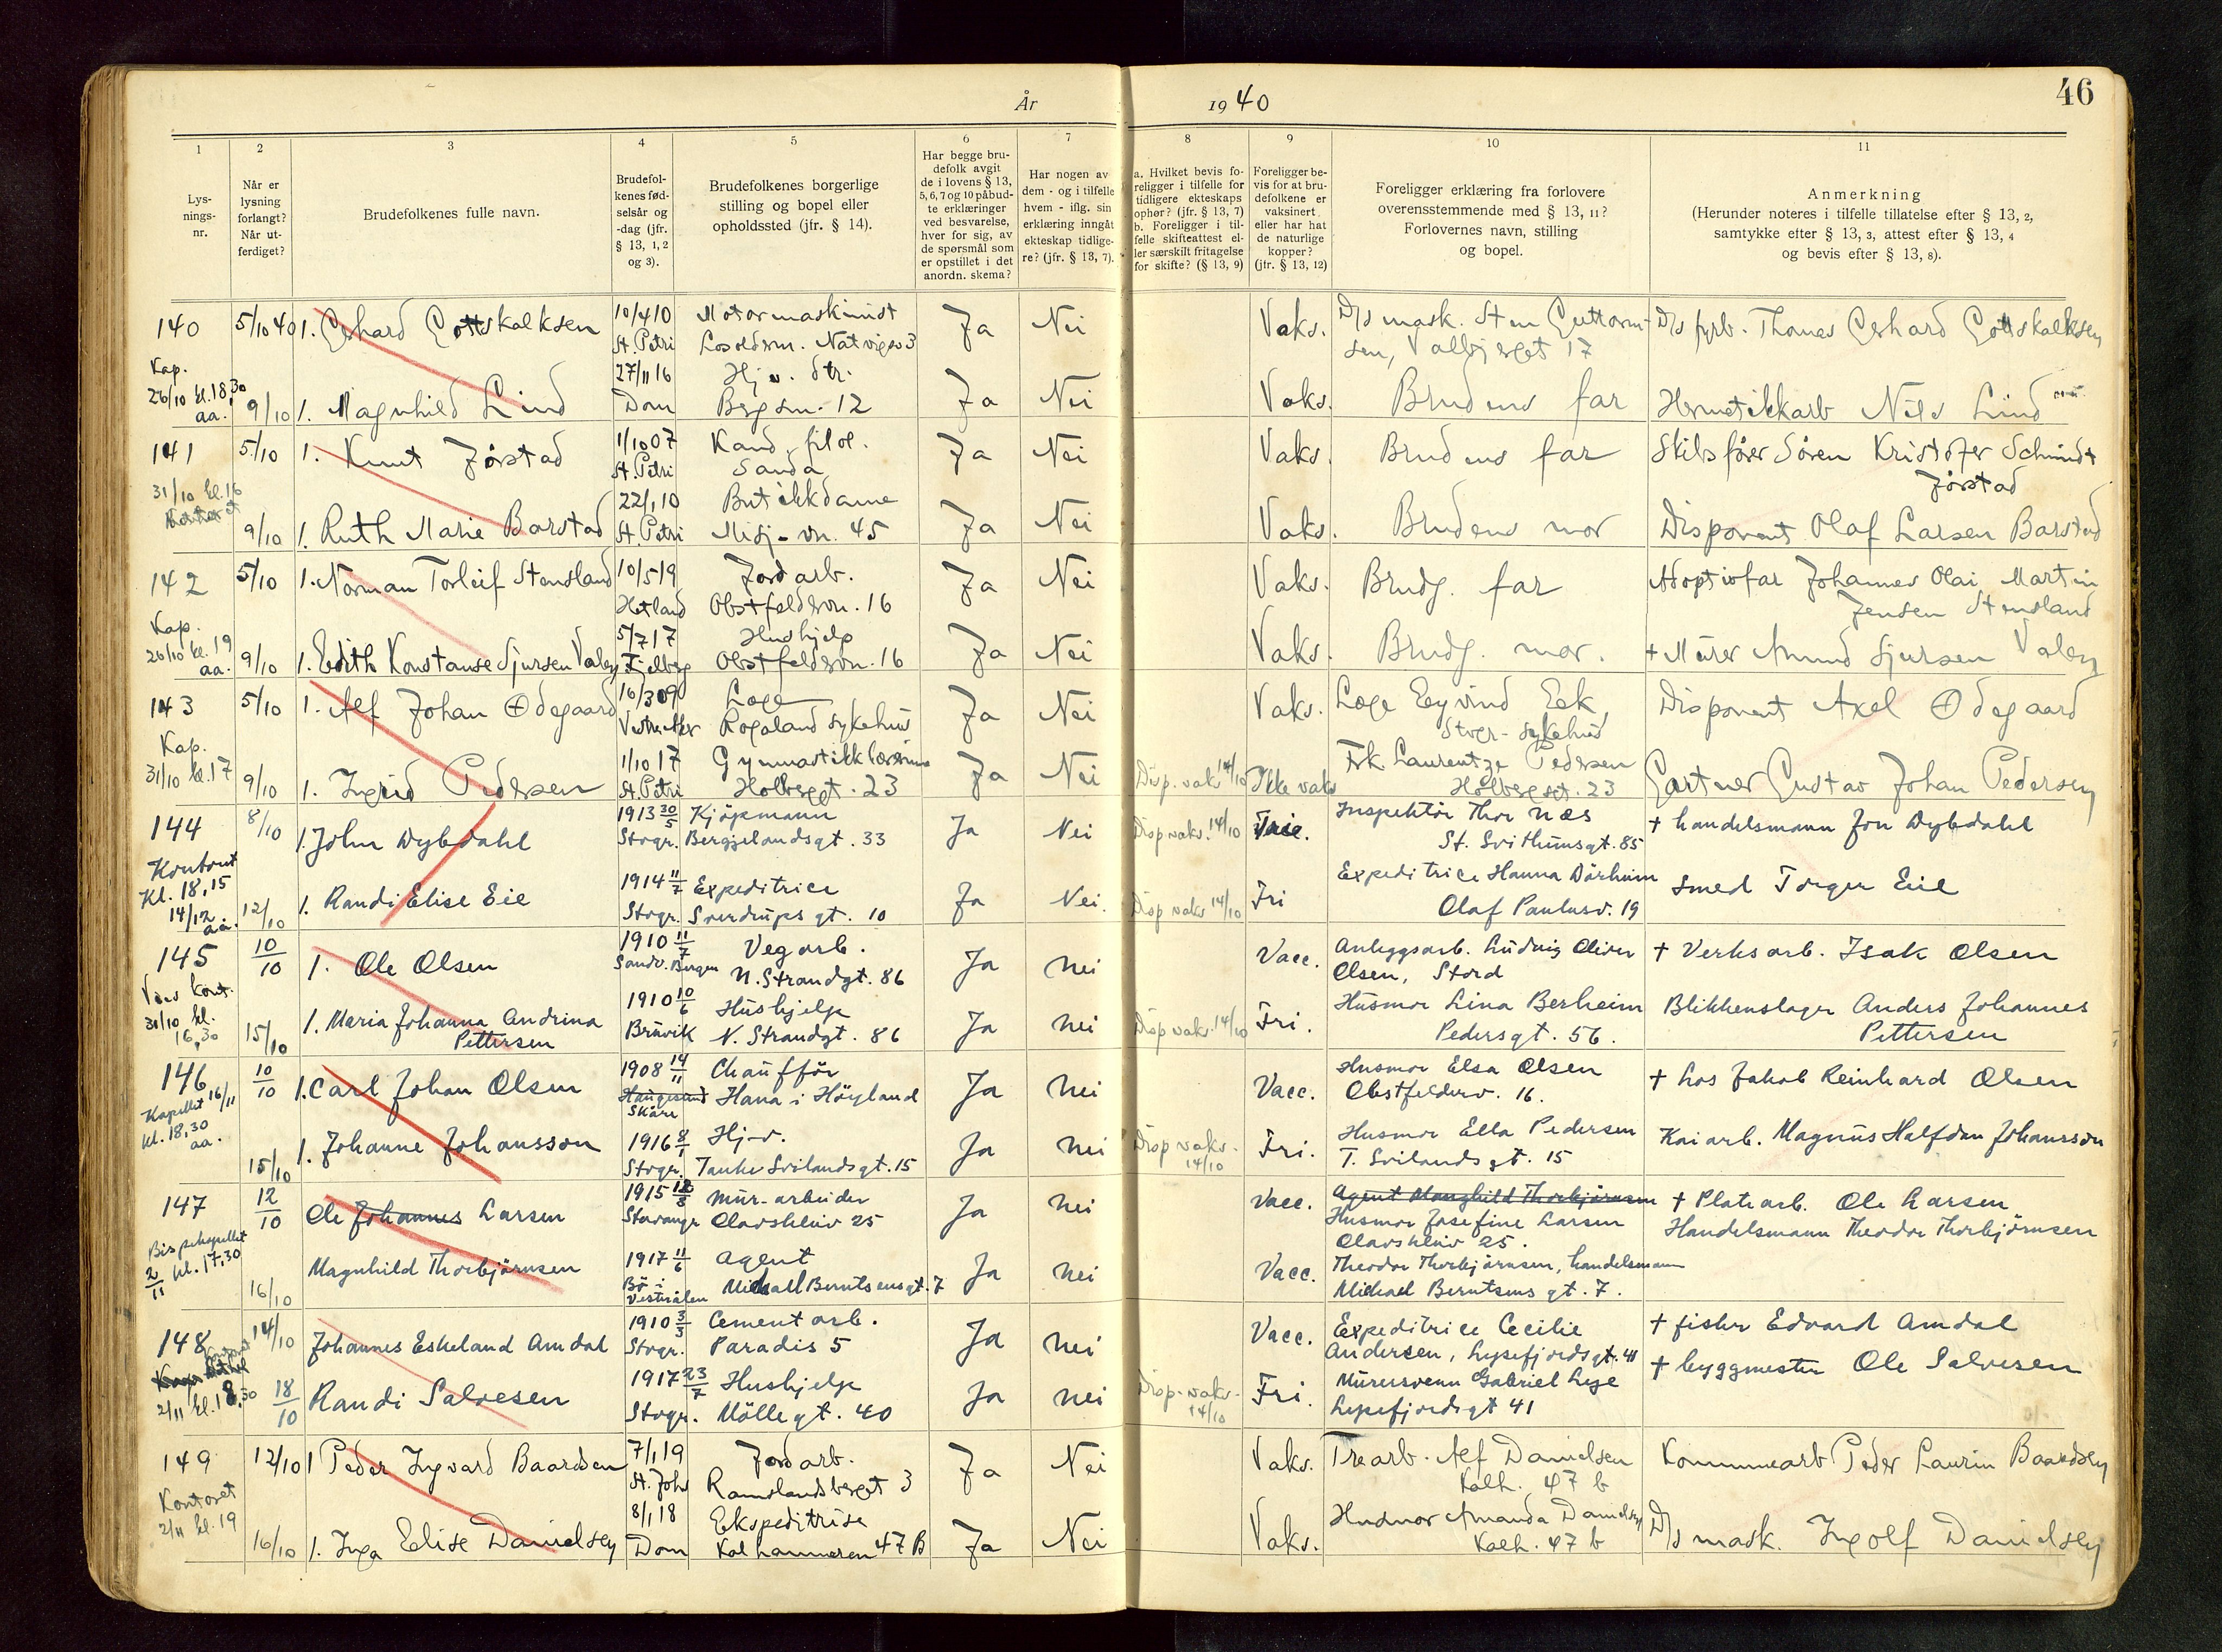 År 1940
46
1
2
3
4
5
6
7
8
9
10
11
Lys-
nings-
nr.
Når er
lysning
forlangt?
Når ut-
ferdiget?
Brudefolkenes fulle navn.
Brudefol-
kenes fød-
selsår og
-dag (jfr.
§ 13, 1, 2
og 3).
Brudefolkenes borgerlige
stilling og bopel eller
opholdssted (jfr. § 14).
Har begge bru-
defolk avgit
de i lovens § 13,
5, 6, 7 og 10 påbud-
te erklæringer
ved besvarelse,
hver for sig, av
de spørsmål som
er opstillet i det
anordn. skema?
Har nogen av
dem - og i tilfelle
hvem - iflg. sin
erklæring inngåt
ekteskap tidlige-
re? (jfr. § 13, 7).
a. Hvilket bevis fo-
religger i tilfelle for
tidligere ekteskaps
ophør? (jfr. § 13, 7)
b. Foreligger i til-
felle skifteattest el-
ler særskilt fritagelse
for skifte? (§ 13, 9)
Foreligger be-
vis for at bru-
defolkene er
vaksinert
eller har hat
de naturlige
kopper?
(jfr. § 13, 12)
Foreligger erklæring fra forlovere
overensstemmende med § 13, 11?
Forlovernes navn, stilling
og bopel.
Anmerkning
(Herunder noteres i tilfelle tillatelse efter § 13, 2,
samtykke efter § 13, 3, attest efter § 13, 4
og bevis efter § 13, 8).
140 5/10 40 1. Gerhard Gottskalksen 10/4 10 Motormaskinist Ja Nei Vaks. D/s mask. Sten Guttorm-
D/s fyrb. Thomas Gerhard Gottskalksen
St. Petri Losoldsm. Natvigsv 3
sen, Valbjerget 17
Kap.
26/10 kl. 18,30
aa.
9/10 1. Magnhild Lind 27/11 16 Hj. v. str.
Dom Bergsm. 12 Ja Nei Vaks. Brudens far Hermetikkarb Nils Lind
141 5/10 1. Knut Jörstad 1/10 07 Kand. filol. Ja Nei Vaks. Brudens far Skibsfører Sören Kristofer Schmidt
St. Petri Sanda
Jörstad
31/10 kl. 16
22/1 10 Butikkdame
9/10 1. Ruth Marie Barstad St. Petri Misj-vn. 45 Ja Nei Vaks. Brudens mor Disponent Olaf Larsen Barstad
142 5/10 1. Norman Torleif Stensland 10/5 19 Jordarb. Ja Nei Vaks. Brudg. far Adoptivfar Johannes Olai Martin
Hetland Obstfeldersvn. 16
Jensen Stensland
Kap.
26/10 kl. 19
aa.
5/7 17 Hushjelp
9/10 1. Edith Konstanse Sjursen Valen Fjelberg Obstfeldersvn. 16 Ja Nei Vaks. Brudg. mor. + Murer Amund Sjursen Valen
143 5/10 1. Alf Johan Ødegaard 16/3 09 Lege Ja Nei Vaks. Lege Eyvind Eek, Disponent Axel Ødegaard
Vestre Aker Rogaland sykehus
Stvgr- sykehus
Kap.
31/10 kl. 17
1/10 17 Gymnastikklærerinne
Frk. Laurentze Pedersen
9/10 1. Ingrid Pedersen St. Petri Holbergst. 23 Ja Nei Disp. vaks 14/10 Ikke vaks Holbergst. 23 Gartner Gustav Johan Pedersen
144 8/10 1. John Dybdahl 1913 30/5 Kjöpmann Ja Nei Disp vaks. 14/10 Inspektör Thor Næs + handelsmann Jon Dybdahl
Stvgr. Bergjelandsgt. 33
St. Svithunsgt. 85
Kontoret
Kl. 18,15
14/12
aa.
12/10 1. Randi Elise Eie 1914 11/7 Expeditrice Ja Nei. Disp vaks 14/10 Fri Expeditrice Hanna Dörheim Smed Torger Eie
Stvgr. Sverdrups gt. 10
Olaf Paulusv. 19
145 10/10 1. Ole Olsen 1910 11/7 Vegarb. Ja Nei Vacc. Anleggsarb. Ludvig Oliver + Verksarb. Isak Olsen
Sandv. Bergen N. Strandgt. 86
Olsen, Stord
Vårs kont.
31/10 kl.
16,30
15/10 1. Maria Johanna Andrina 1910 10/6 Hushjelp Ja Nei Disp vaks. 14/10 Fri. Husmor Lina Berheim Blikkenslager Anders Johannes
Pettersen Bruvik N. Strandgt. 86
Pedersgt. 56. Pettersen
146 10/10 1. Carl Johan Olsen 1908 14/11 Chaufför Ja Nei Vacc. Husmor Elsa Olsen + Los Jakob Reinhard Olsen
Haugesund Skåre Hana i Höyland
Obstfelderv. 16.
Kapellet 16/11
kl. 18,30
aa.
15/10 1. Johanne Johansson 1916 8/1 Hj-v. Ja Nei Disp vaks- 14/10 Fri. Husmor Ella Pedersen Kaiarb. Magnus Halfdan Johansson
Stvgr. Tanke Svilandsgt. 15
T. Svilandsgt. 15
147 12/10 Ole Johannes Larsen 1915 12/8 mur-arbeider Ja Nei Vacc. Agent Manghild Thorbjörnsen + Platearb. Ole Larsen
Stavanger Olavskleiv 25
Husmor Josefine Larsen Handelsmann Theodor Thorbjörnsen
Olavskleiv 25.
Bispekapellet
2/11 kl. 17,30
16/10 Magnhild Thorbjörnsen 1917 11/6 Agent Ja Nei Vacc. Theodor Thorbjörnsen, handelsmann
Bö i Vesterålen Michael Berntsensgt. 7
Michael Berntsens gt. 7.
148 14/10 Johannes Eskeland Amdal 1910 3/3 Cementarb. Ja Nei Vacc. Expeditrice Cecilie + fisker Edvard Amdal
Stvgr. Paradis 5
Andersen, Lysefjordsgt. 41
Kontoret
2/11 kl. 18,30
18/10 Randi Salvesen 1917 23/7 Hushjelp Ja Nei Disp-vaks- 14/10 Fri. Murersvenn Gabriel Lye + byggmester Ole Salvesen
Stvgr. Möllegt. 40
Lysefjordsgt 41
149 12/10 1 Peder Ingvard Baardsen 7/1 19 Jordarb. Ja Nei Vaks. Trearb. Alf Danielsen Kommunearb Peder Laurin Baardsen
St. Johs Ramslandsberget 3
Kalh. 47 b
Kontoret
2/11 kl. 19
8/1 18 Ekspeditrise
Husmor Amanda Danielsen
16/10 1. Inga Elise Danielsen Dom Kalhammeren 47 B Ja Nei Vaks. Kalh. 47 b D/s mask. Ingolf Danielsen